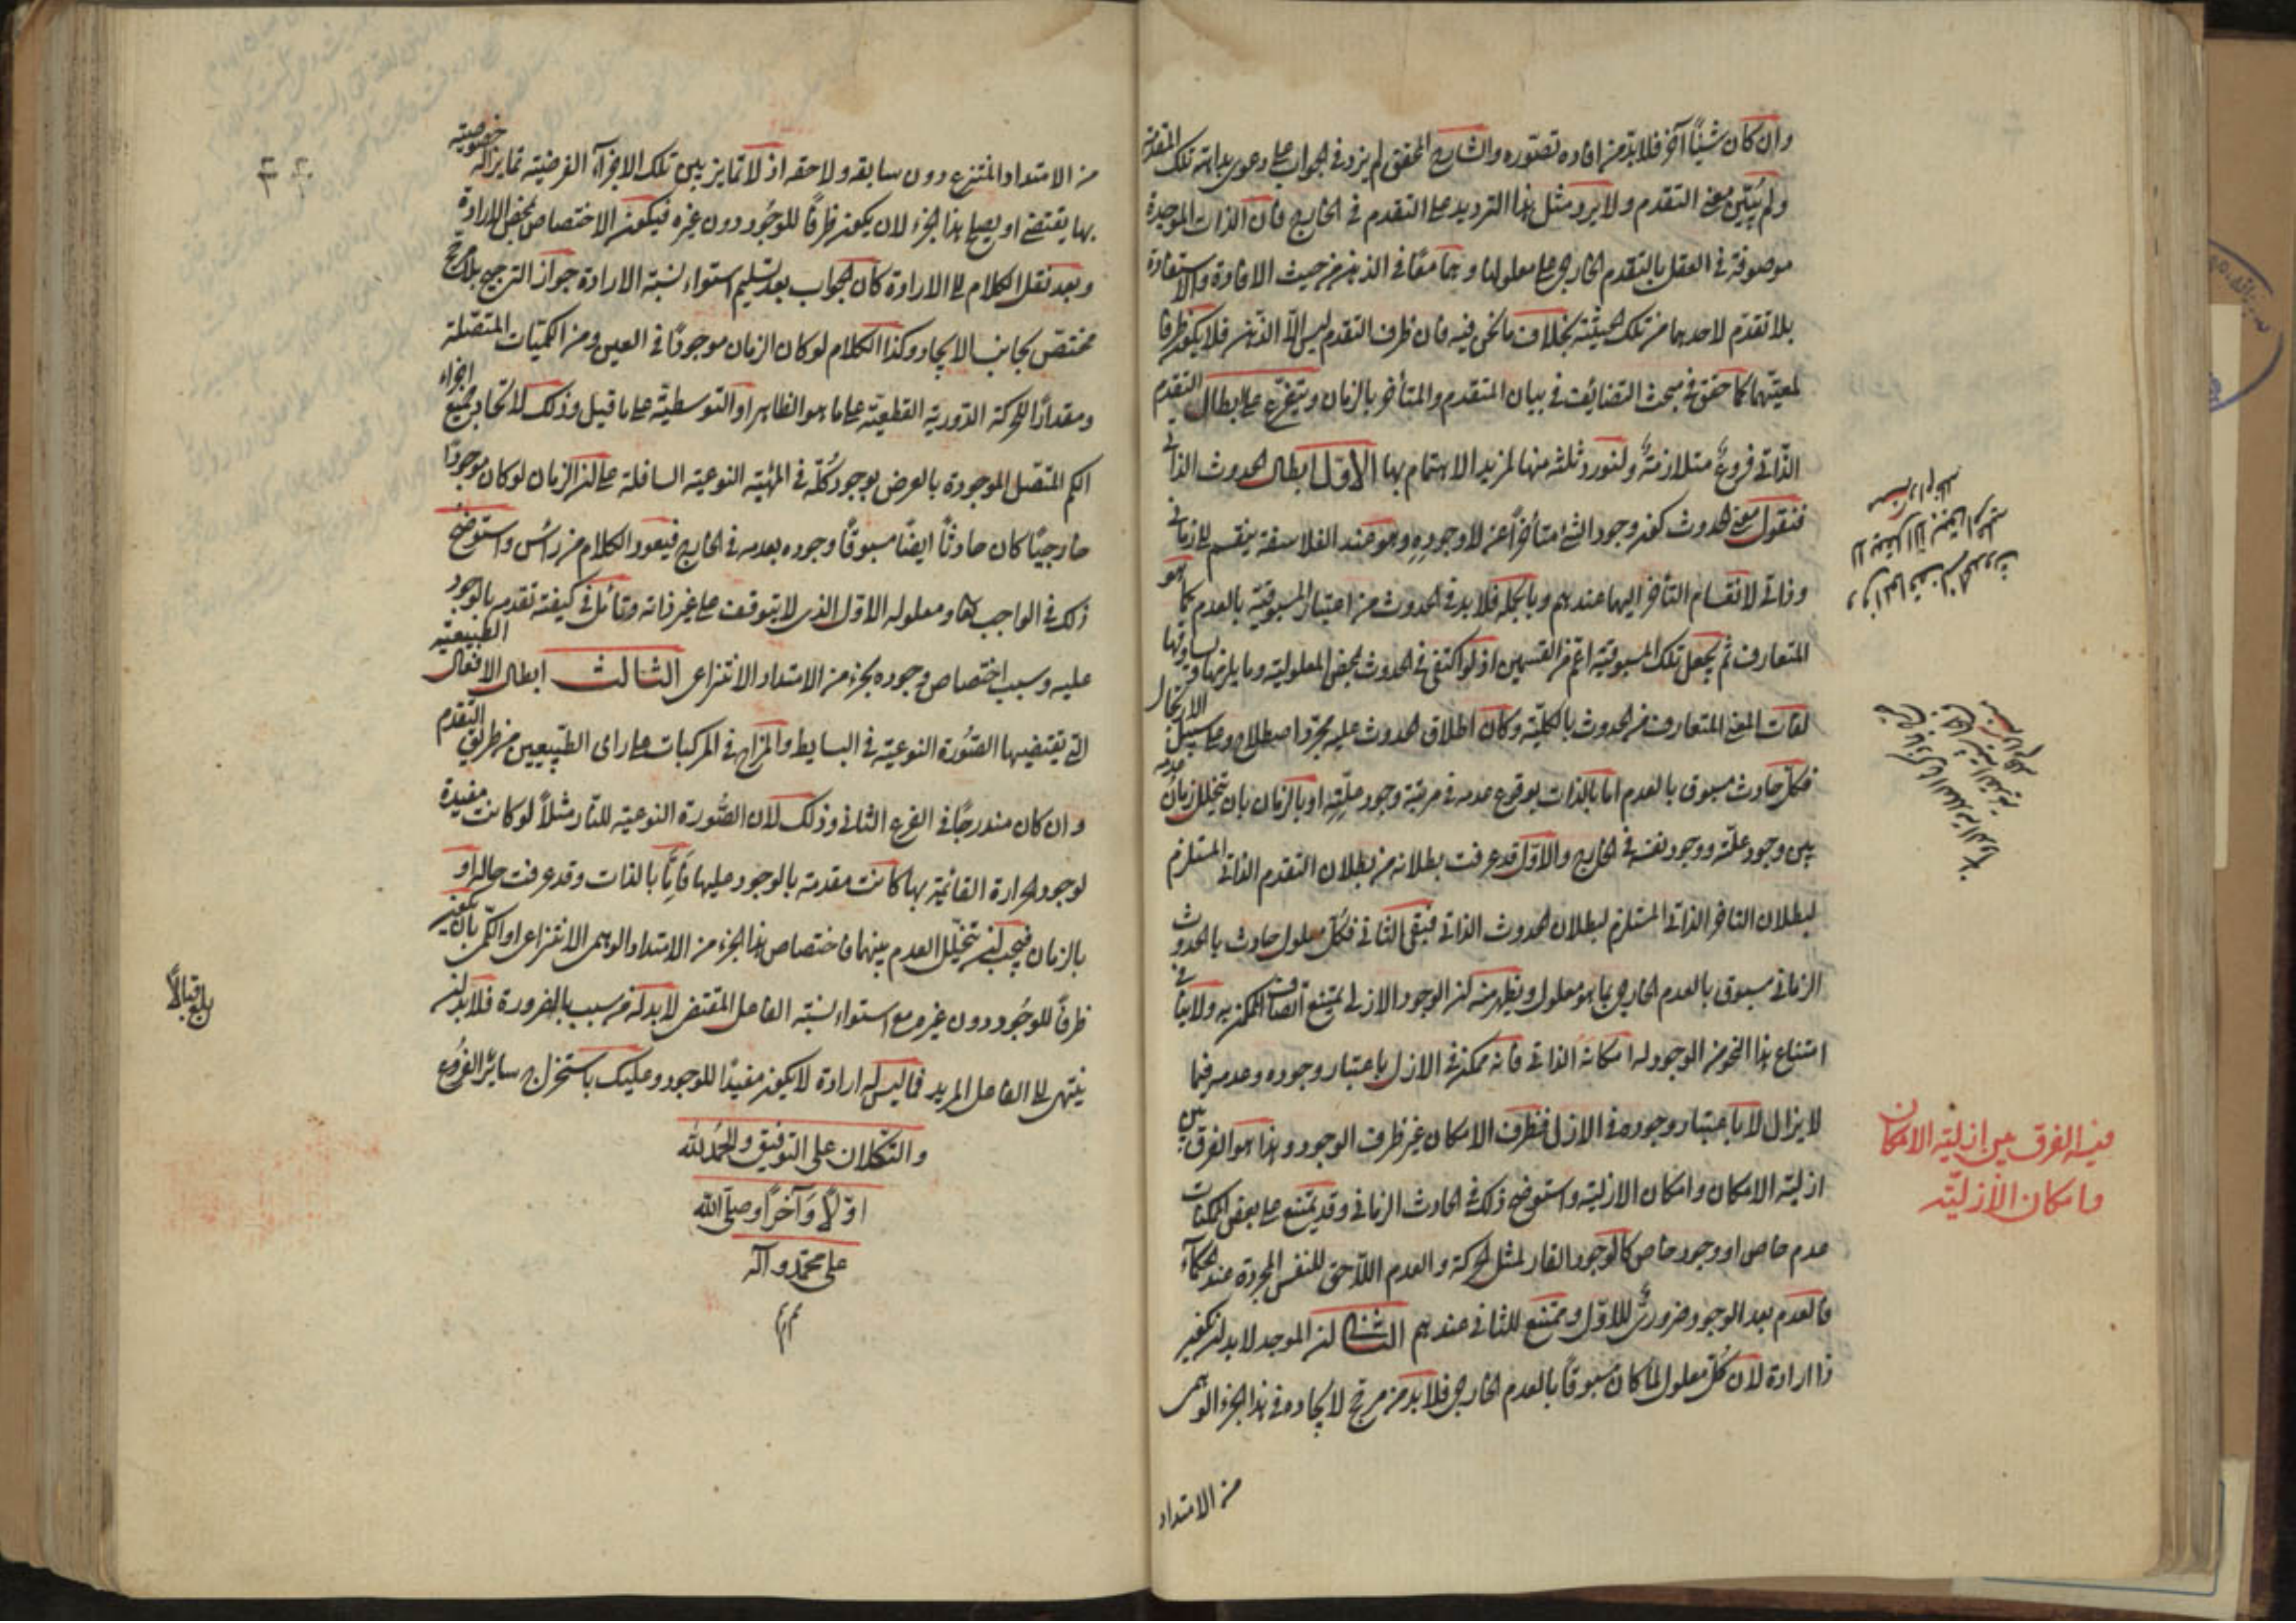 وان كان شيئاً آخر فلابد من افاده تصوّره والشارح المحقق لم يزد في الجواب على دعوى بداهة تلك المقدمة
ولم يُبيّن معنى التقدم ولا يرد مثل هذا الترديد على التقدم في الخارج فان الذات الموجدة
موصوفة في العقل بالتقدم الخارجي على معلولها وهما معًا في الذهن من حيث الافادة والاستفادة
بلا تقدّم لاحدهما من تلك الحيثية بخلاف ما نحن فيه فان ظرف التقدم ليس الّا الذهن فلا يكون ظرفا
لمعيّتهما كما حقق في مبحث التضائف في بيان المتقدم والمتأخر بالزمان ويتفرع على ابطال التقدم
الذاتي فروعٌ متلازمةٌ ولنورد ثلثه منها لمزيد الاهتمام بها الاوّل ابطال الحدوث الذاتي
فنقول معنى الحدوث كون وجود الشئ متأخراً عن لا وجودِهِ وهو عند الفلاسفة ينقسم الى زماني
وذاتي لانقسام التأخر اليهما عندهم وبالجملة فلابد في الحدوث من اعتبار المسبوقية بالعدم كما هو
المتعارف ثم يجعل تلك المسبوقية اعم من القسمين اذ لو اكتفى في الحدوث بمحض المعلولية وما يلزمها ويساوقها
لفات المعنى المتعارف من الحدوث بالكليّة وكان اطلاق الحدوث عليه مجرّد اصطلاح وعلى سبيل الارتجال
فكلّ حادث مسبوق بالعدم اما بالذات بوقوع عدمه في مرتبة وجود علّتِهِ او بالزمان بان يتخلل زمان عدمه
بين وجود علّته ووجود نفسه في الخارج والاوّل قد عرفت بطلانه من بطلان التقدم الذاتي المستلزم
لبطلان التاخر الذاتي المستلزم لبطلان الحدوث الذاتي فبقى الثاني فكُلّ معلول حادث بالحدوث
الزماني مسبوق بالعدم الخارجي بما هو معلول ويظهر منه ان الوجود الازلي يمتنع اتصاف الممكن به ولا ينافي
امتناع هذا النحو من الوجود له امكانه الذاتي فانه ممكن في الازل باعتبار وجوده وعدمه فيما
لا يزال لا باعتبار وجوده في الازل فظرف الامكان غير ظرف الوجود وهذا هو الفرق بين
ازلية الامكان وامكان الازلية واستوضح ذلك في الحادث الزماني وقد يمتنع على بعض الممكنات
عدم خاص او وجود خاص كالوجود القار لمثل الحركة والعدم اللاحق للنفس المجردة عند الحكماء
فالعدم بعد الوجود ضروريٌ للاوّل وممتنع للثاني عندهم الثاني ان الموجد لابد ان يكون
ذا ارادة لان كلّ معلول لما كان مسبوقاً بالعدم الخارجي فلابد من مرجح لايجاده في هذا الجزء الوهمي
من الامتداد
فيه الفرق بين ازلية الامكان
وامكان الأزليّة
من الامتداد المنتزع دون سابقه ولاحقه اذ لا تمايز بين تلك الاجزاء الفرضيّة تمايزاً له خصوصيّة
بها يقتضى او يصلح هذا الجزء لان يكون ظرفًا للوجُود دون غيره فيكون الاختصاص بمحض الارادة
وبعد نقل الكلام الى الارادة كان الجواب بعد تسليم استواء نسبة الارادة جواز الترجيح بلا مرجح
مختصّ بجانب الايجاد وكذا الكلام لو كان الزمان موجودًا في العين ومن الكميّات المتصّلة
ومقدارًا للحركة الدّورية القطعيّة على ما هو الظاهر او التوسطيّة على ما قيل وذلك لاتحاد جميع اجزاء
الكم المتّصل الموجودة بالعرض بوجود كُلّه في المهيّة النوعيّة السافلة على ان الزمان لو كان موجودًا
خارجيًا كان حادثاً ايضًا مسبوقًا وجوده بعدمه في الخارج فيعود الكلام من راس واستوضح
ذلك في الواجب تعالى ومعلوله الاوّل الذي لا يتوقف على غير ذاته وتأمّل في كيفيّة تقدمه بالوجود
عليه وسبب اختصاص وجوده بجزء من الامتداد الانتزاعي الثالث ابطال الافعال الطبيعية
التي يقتضيها الصُّورة النوعيّة في البسايط والمزاج في المركبات على راى الطّبيعيين من طريق التّقدم
وان كان مندرجًا في الفرع الثاني وذلك لان الصُّورة النوعيّة للنّار مثلاً لو كانت مفيدة
لوجود الحرارة القائمة بها كانت مقدمة بالوجود عليها فامّا بالذات وقد عرفت حاله او
بالزمان فيجب ان يتخلّل العدم بينهما فاختصاص هذا الجزء من الامتداد الوهمي الانتزاعي او الكمّي بان يكون
ظرفاً للوجُود دون غيره مع استواء نسبة الفاعل المقتضى لابد له من سبب بالضرورة فلابد ان
ينتهى الى الفاعل المريد فما ليس له ارادة لا يكون مفيدًا للوجود وعليك باستخراج ساير الفروع
والتكلان على التوفيق والحمد لله
اوّلاً وَآخراً وصلّى الله
على محمّد وآله
تم
بلغ قبالاً